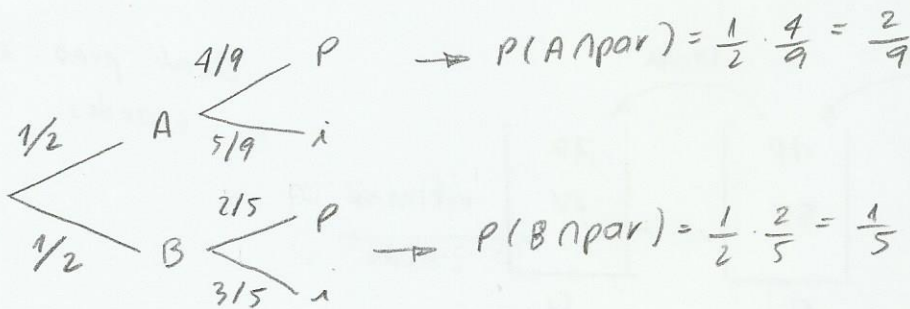 4/9 P → P(A∩par) = 1/2 · 4/9 = 2/9
1/2 A
5/9 i
2/5 P → P(B∩par) = 1/2 · 2/5 = 1/5
1/2 B
3/5 i